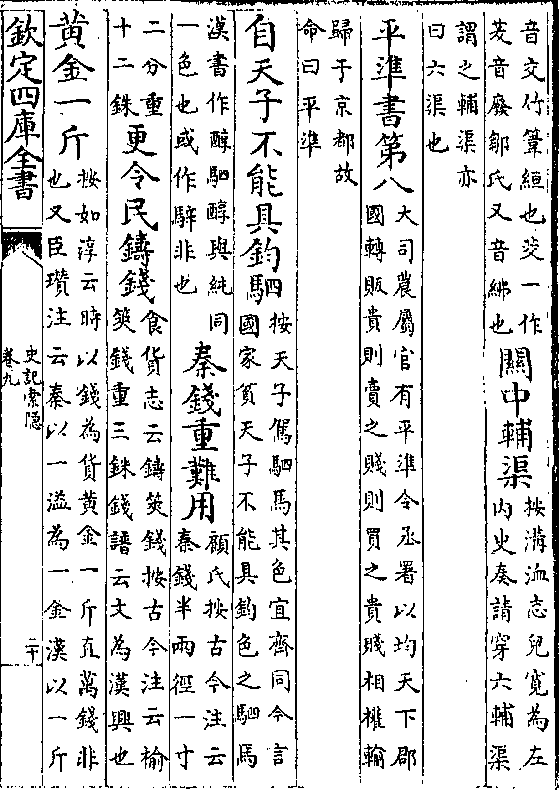 音交竹葦絙也茭一作
茇音廢鄒氏又音紼也
關中輔渠
按溝洫志兒寬為左
内史奏請穿六輔渠
謂之輔渠亦
曰六渠也
平準書第八
大司農屬官有平準令丞署以均天下郡
國轉販貴則賣之賤則買之貴賤相權輸
歸于京都故
命曰平準
自天子不能具鈞駟
按天子駕駟馬其色宜齊同今言
國家貧天子不能具鈞色之駟馬
漢書作醇駟醇與純同
一色也或作騂非也
秦錢重難用
顧氏按古今注云
秦錢半兩徑一寸
二分重
十二銖
更令民鑄錢
食貨志云鑄莢錢按古今注云榆
莢錢重三銖錢譜云文為漢興也
黄金一斤
按如淳云時以錢為貨黄金一斤直萬錢非
也又臣瓚注云秦以一溢為一金漢以一斤
欽定四庫全書
史記索隱
卷九
二十